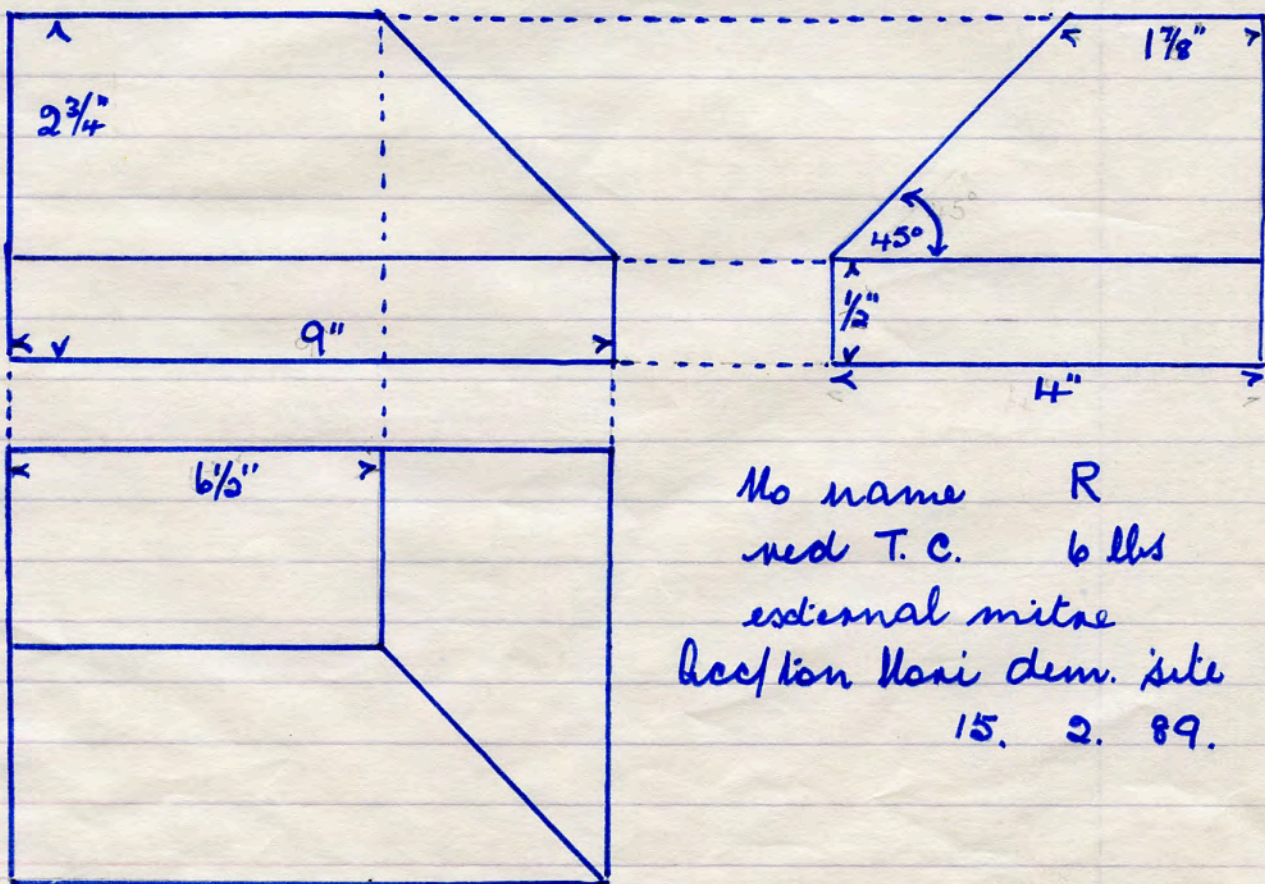 1 7/8"
2 3/4"
45°
1/2"
9"
4"
6 1/2"
No name R
red T. C. 6 lbs
external mitre
Acc/ton Nori dem. site
15. 2. 89.